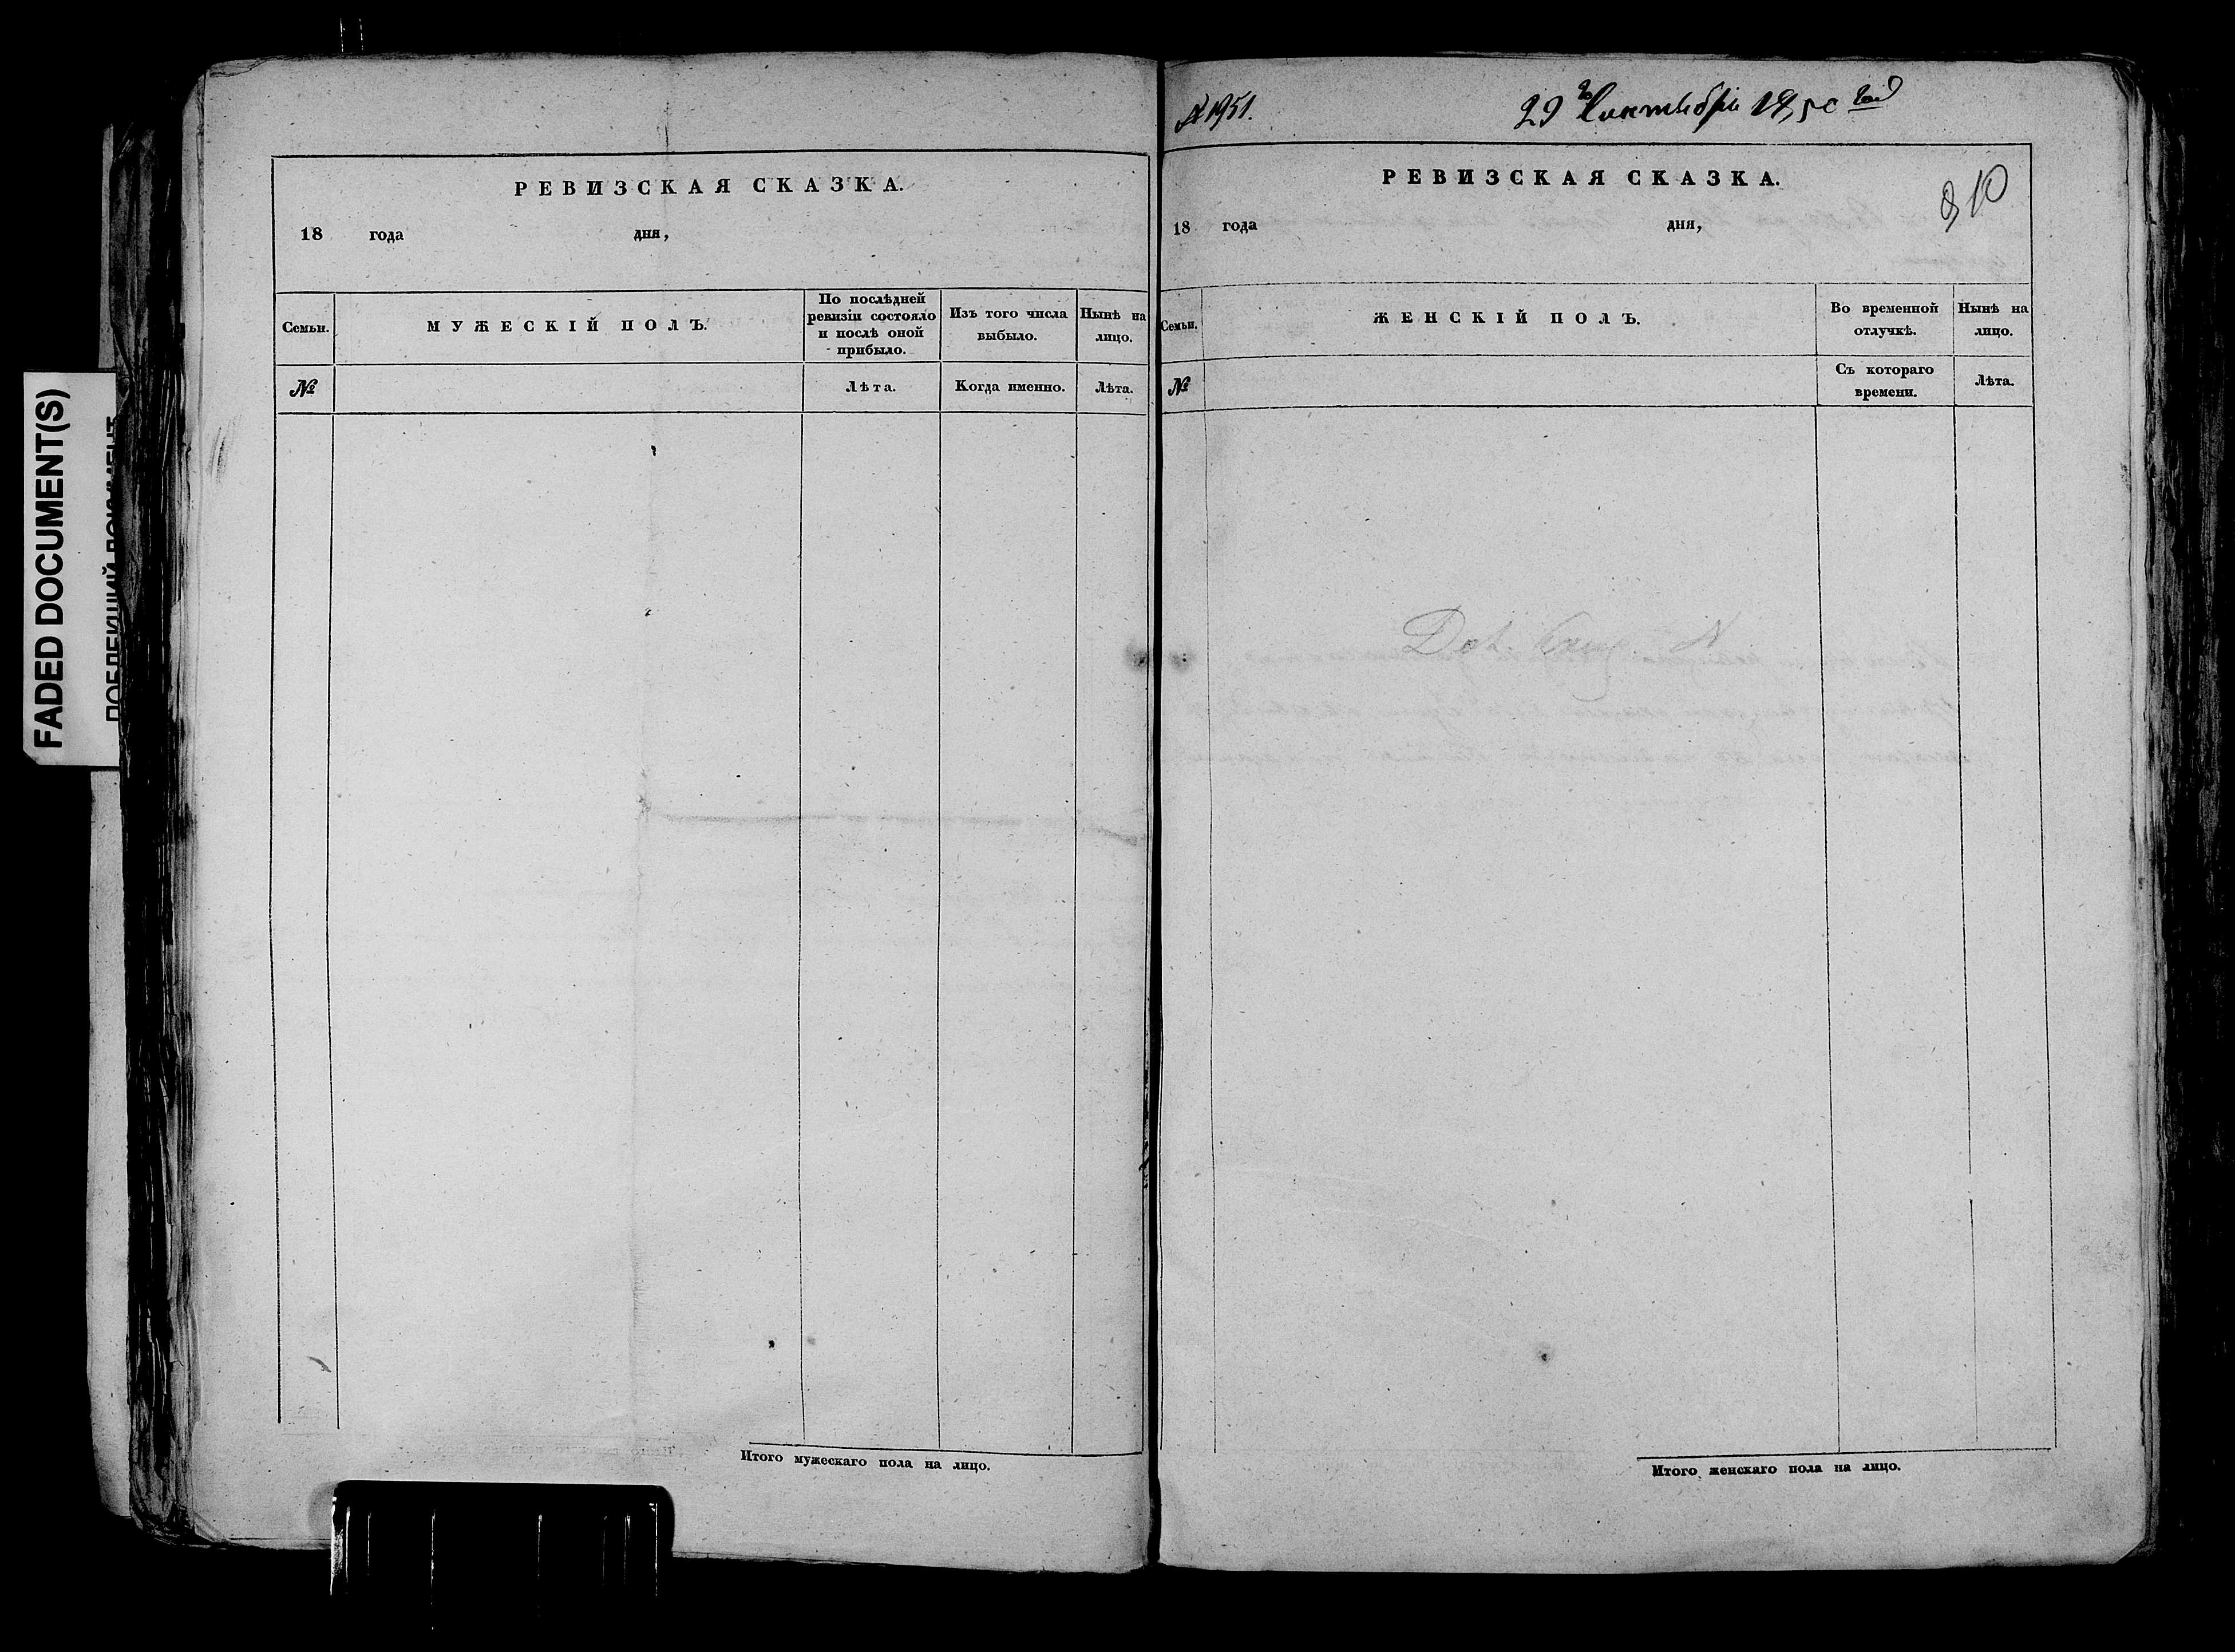 FADED DOCUMENT(S)
РЕВИЗСКАЯ СКАЗКА.
18 года дня,
Семьи.
МУЖЕСКІЙ ПОЛЪ.
По послѣдней
ревизіи состояло
и послѣ оной
прибыло.
Изъ того числа
выбыло.
Нынѣ на
лицо.
№
Лѣта.
Когда именно.
Лѣта.
Итого мужескаго пола на лицо.
№ 1951.
29 1850
РЕВИЗСКАЯ СКАЗКА.
18 года дня,
Семьи.
ЖЕНСКІЙ ПОЛЪ.
Во временной
отлучкѣ.
Нынѣ на
лицо.
№
Съ котораго
времени.
Лѣта.
Итого женскаго пола на лицо.